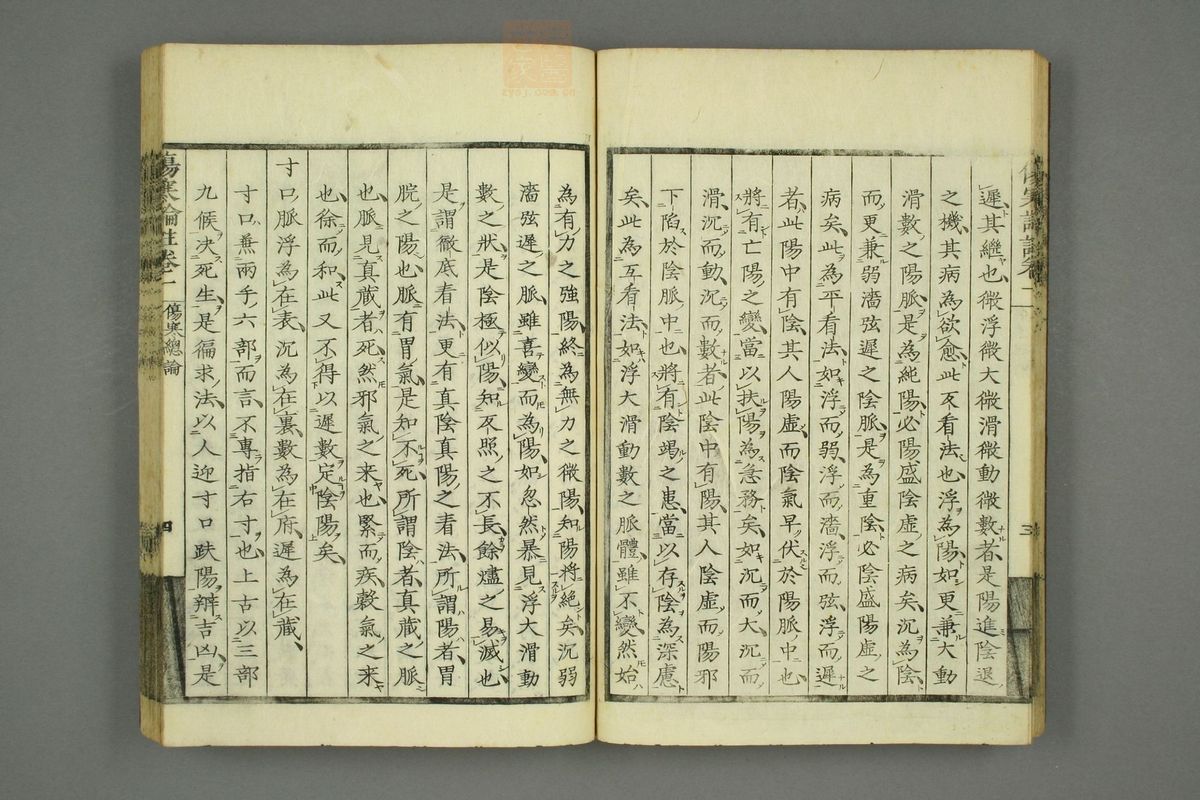 遲其繼也微浮微大微滑微動微數者是陽進陰退
之機其病為欲愈此反看法也浮為陽如更兼大動
滑數之陽脈是為純陽必陽盛陰虛之病矣沉為陰
而更兼弱濇弦遲之陰脈是為重陰必陰盛陽虛之
病矣此為平看法如浮而弱浮而濇浮而弦浮而遲
者此陽中有陰其人陽虛而陰氣早伏於陽脈中也
將有亡陽之變當以扶陽為急務矣如沉而大沉而
滑沉而動沉而數者此陰中有陽其人陰虛而陽邪
下陷於陰脈中也將有陰竭之患當以存陰為深慮
矣此為互看法如浮大滑動數之脈體雖不變然始
三
為有力之強陽終為無力之微陽知陽將絕矣沉弱
濇弦遲之脈雖喜變而為陽如忽然暴見浮大滑動
數之狀是陰極似陽知反照之不長餘燼之易滅也
是謂徹底看法更有真陰真陽之看法所謂陽者胃
脘之陽也脈有胃氣是知不死所謂陰者真藏之脈
也脈見真藏者死然邪氣之来也緊而疾穀氣之来
也徐而和此又不得以遲數定陰陽矣
寸口脈浮為在表沉為在裏數為在府遲為在藏
寸口兼兩手六部而言不專指右寸也上古以三部
九候決死生是徧求法以人迎寸口趺陽辨吉凶是
傷寒論註卷一
傷寒總論
四